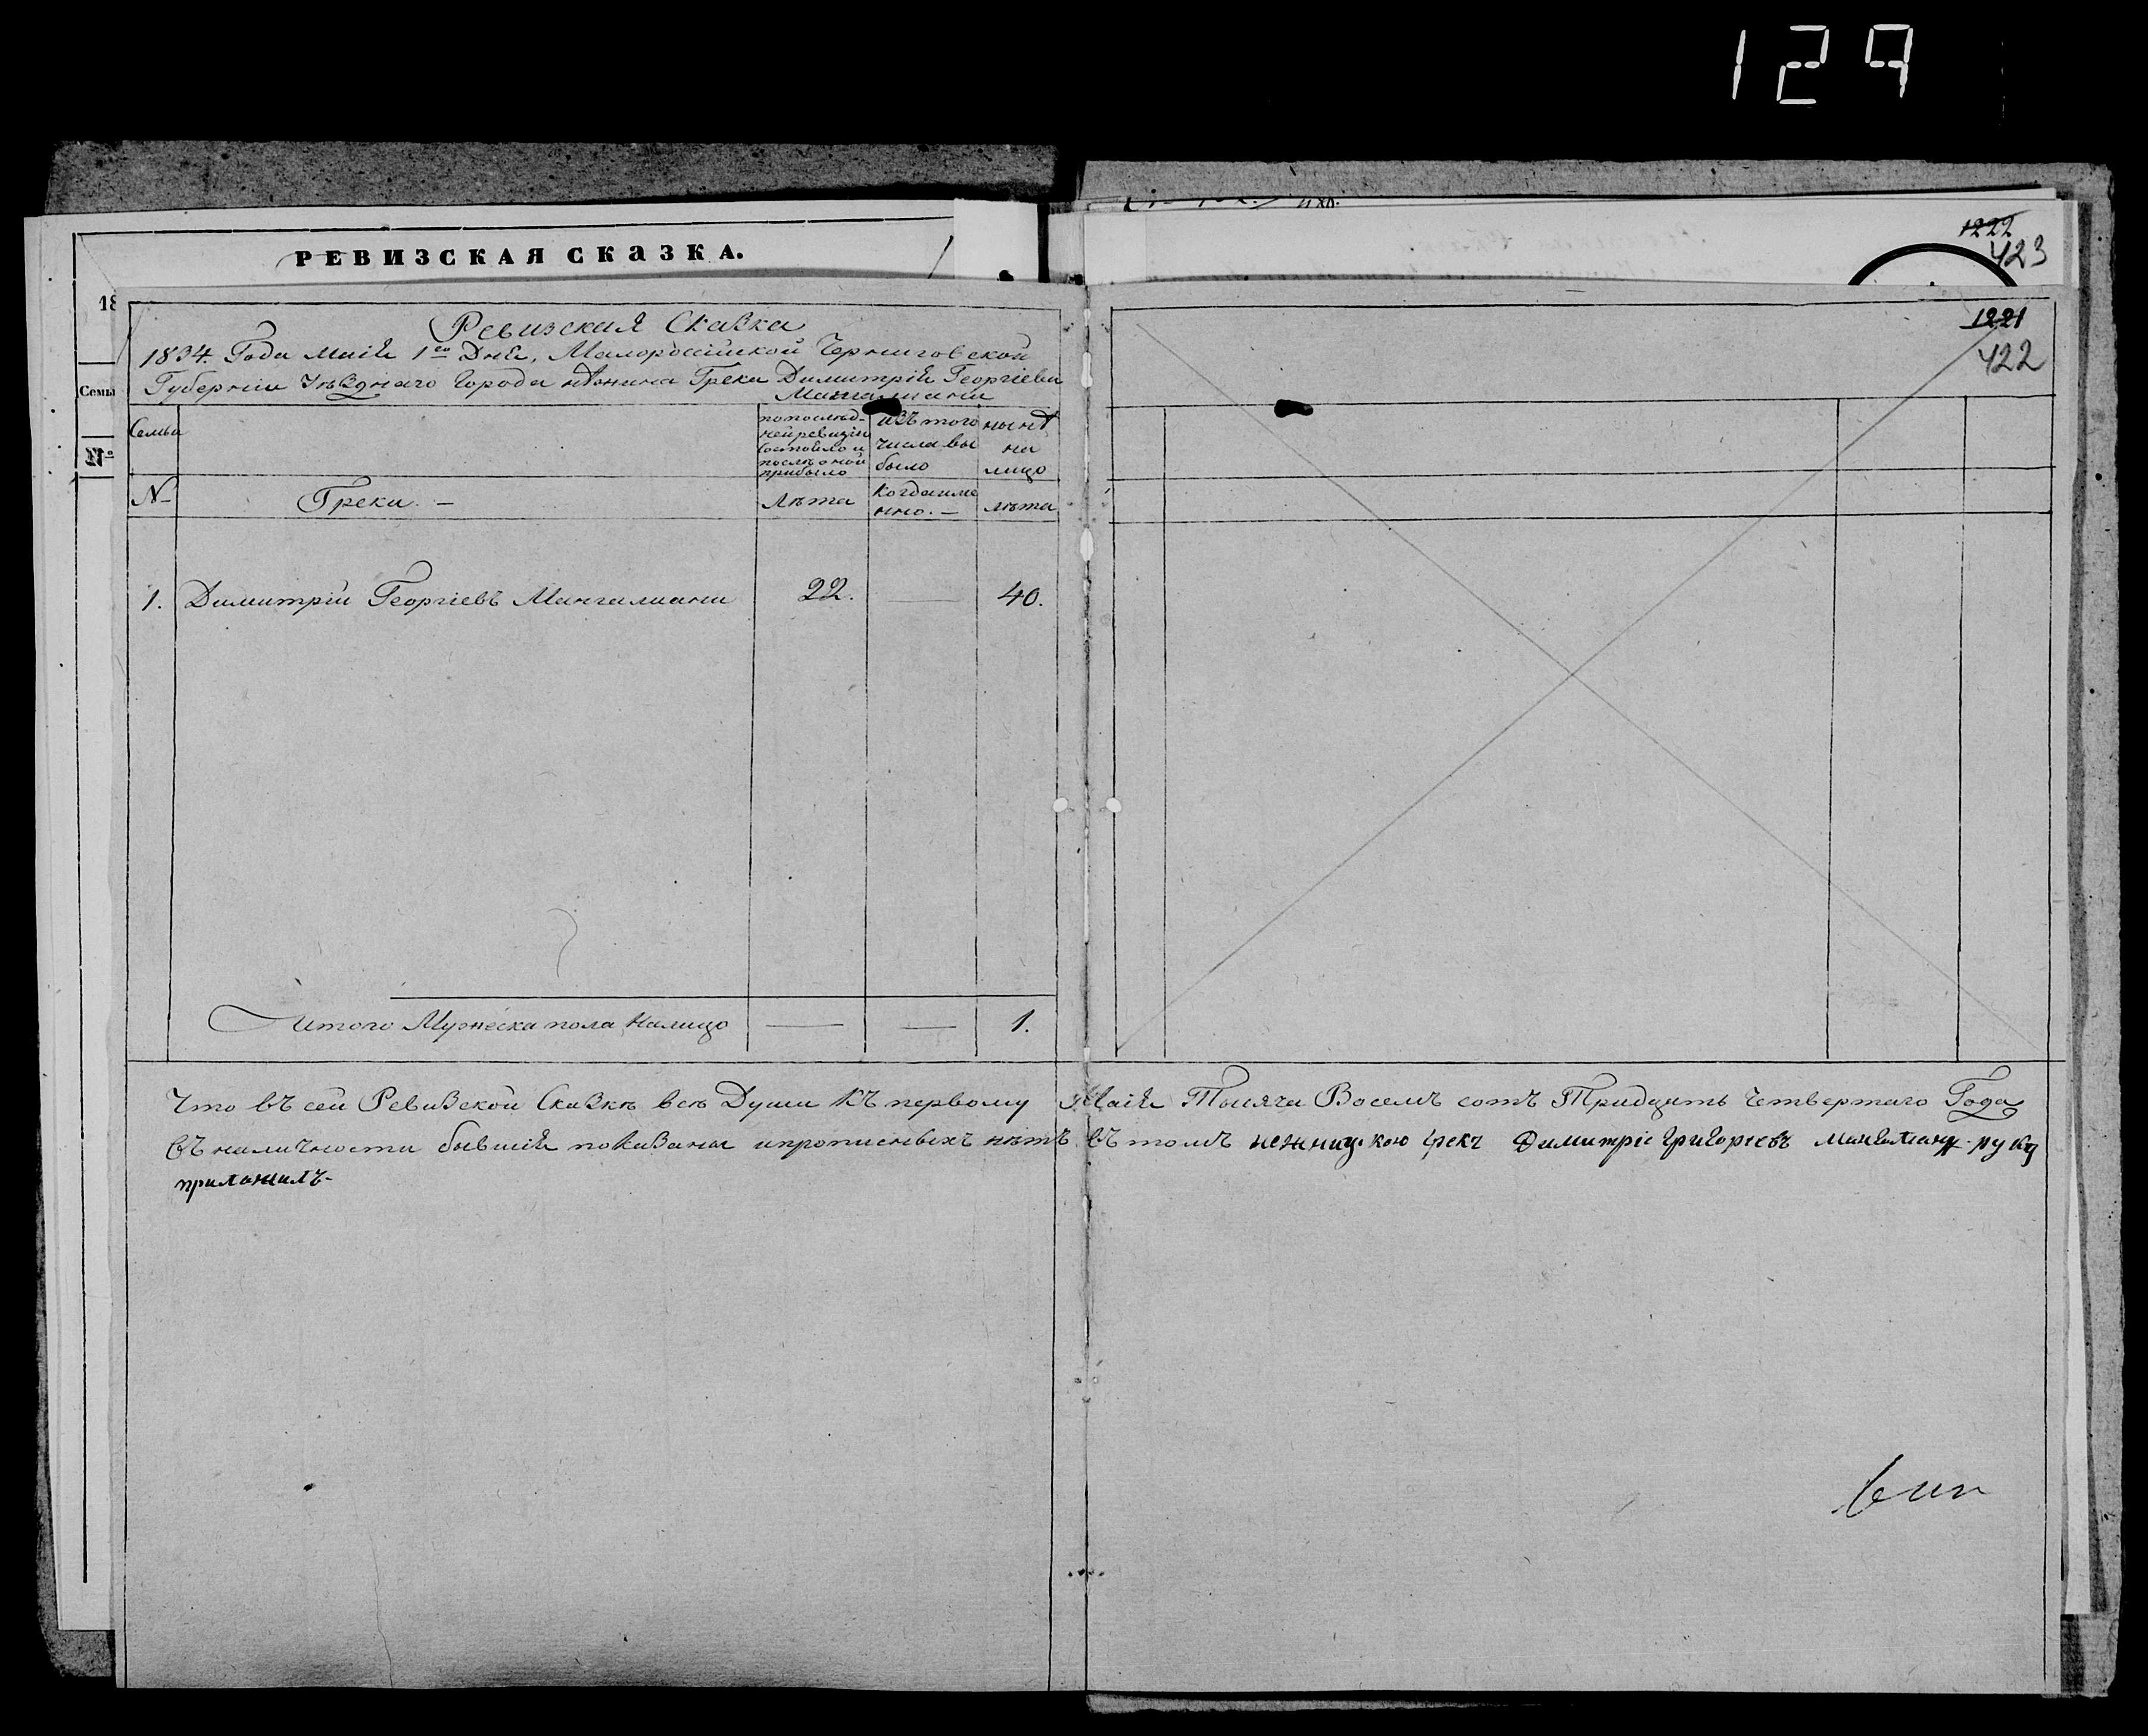 129
РЕВИЗСКАЯ СКАЗКА.
1222
423
18
Семьи
№
1221
422
Ревизская Сказка
1834. Года Маія 1го Дня, Малороссійской Черниговской
Губерніи Уѣзднаго Города нѣжина Грека Димитрія Георгіева
Мангалиани
Семьи
попослѣд-
ней ревизіи
состояло и
послѣ оной
прибыло
изъ того
числа вы
было
нынѣ
на
лицо
№
Греки. —
Лѣта
Когда име
нно. —
лѣта
1. Димитрій Георгіевъ Мангалиани 22. — 40.
Итого Мужеска пола Налицо — — 1.
Что въ сей Ревизской Сказкѣ всѣ Души къ первому Маія Тысяча Восемъ сотъ Тридцать Четвертаго Года
въ наличности бывшія показаны ипрописныхъ нѣтъ въ томъ грекъ Димитріе григоріевъ руку
приложилъ-